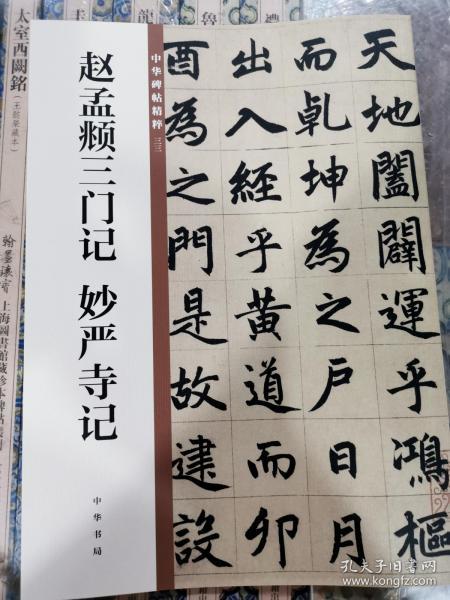 中华碑帖精粹 三三
赵孟𫖯三门记 妙严寺记
中华书局
天地闔闢運乎鴻樞
而乹坤為之戶日月
出入經乎黃道而卯
酉為之門是故建設
太室西闕銘（王懿榮藏本）
翰墨瓌寶 上海圖書館藏珍本碑帖叢刊
孔夫子旧书网
www.kongfz.com